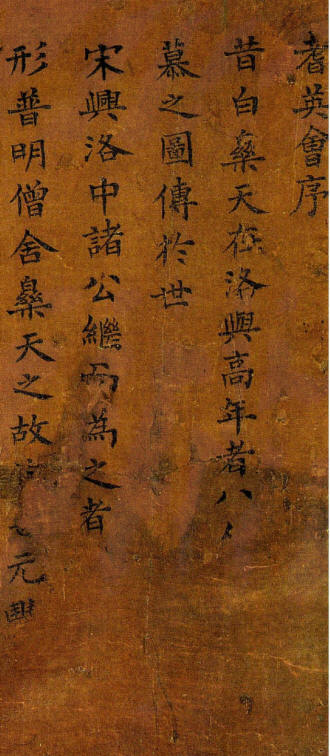 耆英會序
昔白樂天在洛與高年者八人
慕之圖傳於世
宋興洛中諸公繼而為之者
形普明僧舍樂天之故也元豐